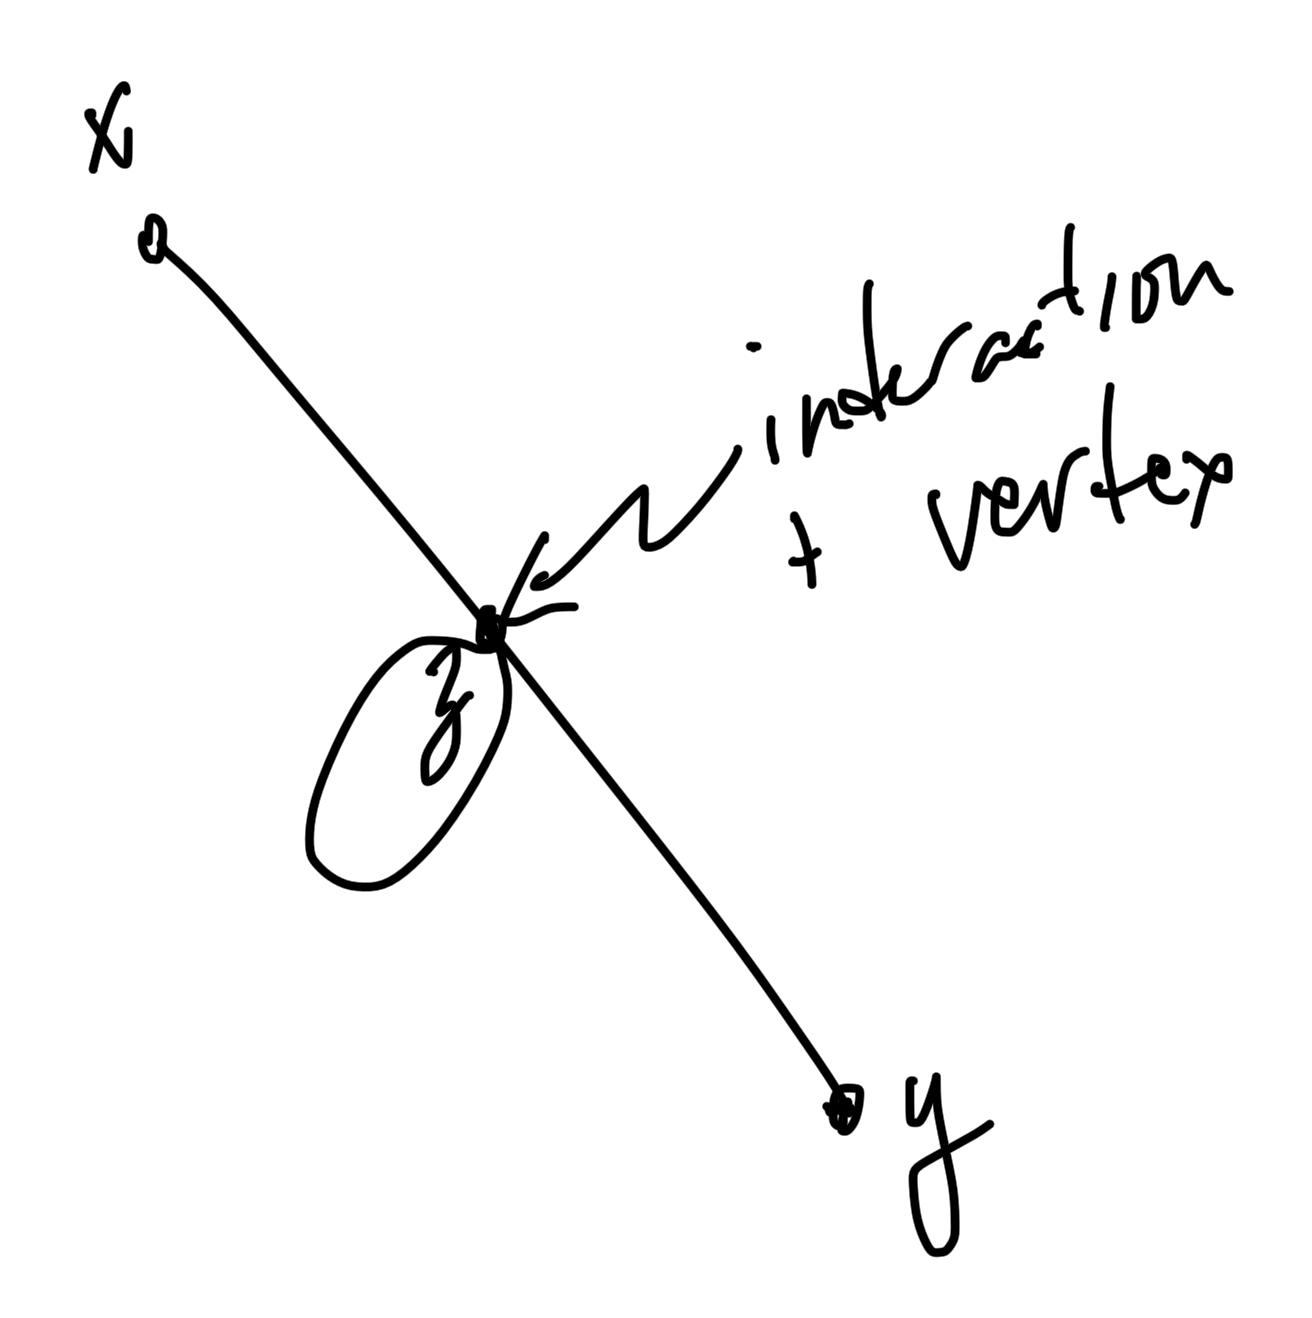 x
interaction
+ vertex
z
y